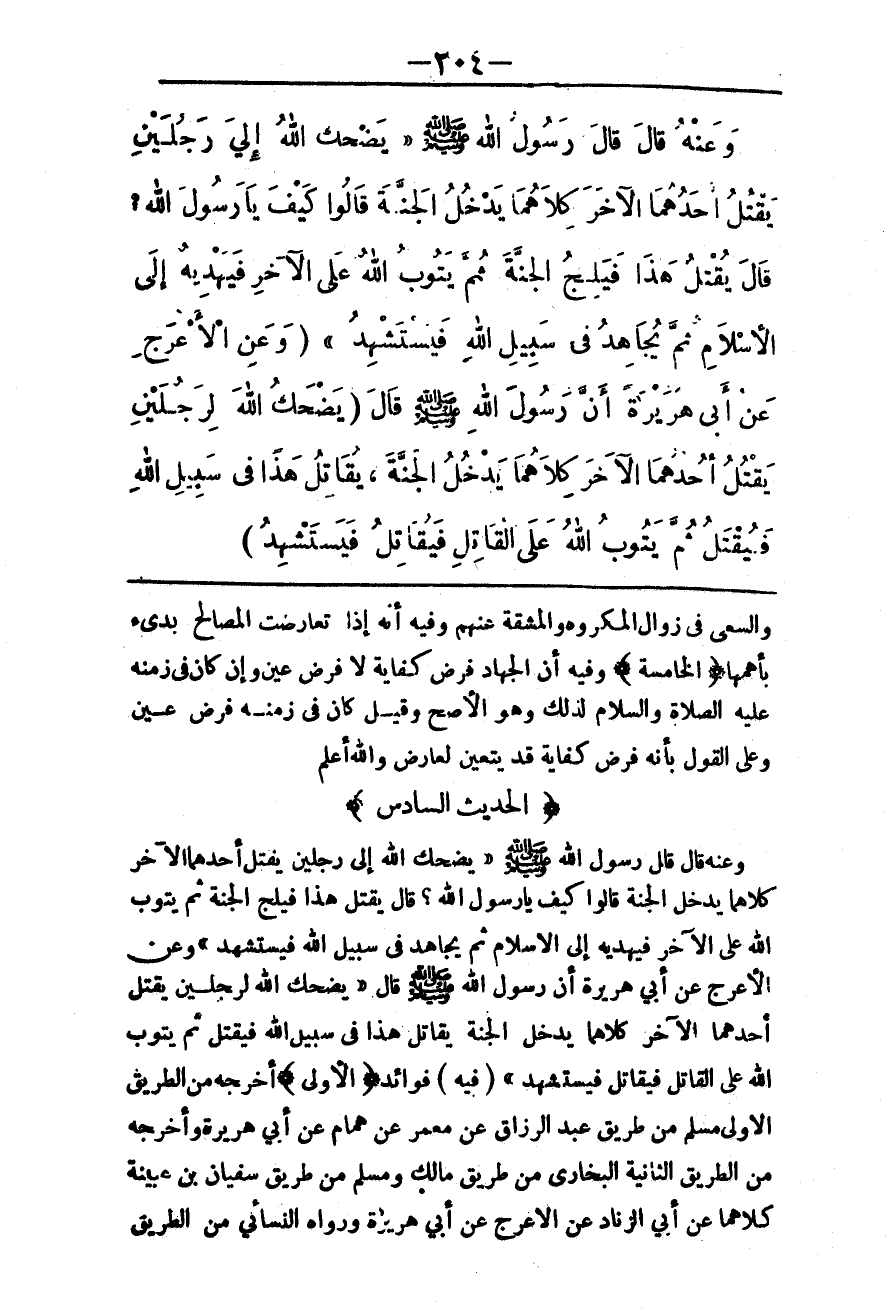 — ٣٠٤ —
وَعَنْهُ قَالَ قَالَ رَسُولُ اللهِ ﷺ « يَضْحك اللهُ إِلَيَ رَجُلَيْنِ
يَقْتُلُ أَحَدُهُمَا الآخَرَ كِلَاهُمَا يَدْخُلُ الجَنَّةَ قَالُوا كَيْفَ يَارَسُولَ الله؟
قَالَ يُقْتَلُ هَذَا فَيَلِجُ الجنَّةَ ثُمَّ يَتُوبُ اللهُ عَلَى الآخَرِ فَيَهْدِيهُ إِلَى
الأسْلَامِ ثُمَّ يُجَاهِدُ فى سَبِيلِ اللهِ فَيُسْتَشْهِدُ » ( وَعَنِ الْأَعْرَجِ
عَنْ أَبِى هُرَيْرَةَ أَنَّ رَسُولَ اللهِ ﷺ قَالَ ( يَضْحَكُ اللهَ لِرَجُلَيْنِ
يَقْتُلُ أحُدُهُمَا الآخَرَ كِلَاهُمَا يَدْخُلُ الجَنَّةَ ، يُقَاتِلُ هَذَا فى سَبِيلِ اللهِ
فَيُقْتَلُ ثُمَّ يَتُوبُ اللهُ عَلَى القَاتِلِ فَيُقَاتِلُ فَيَسْتَشْهِدُ )
والسعى فى زوال المكروه والمشقة عنهم وفيه أنه إذا تعارضت المصالح بدىء
بأهمها ﴿ الخامسة ﴾ وفيه أن الجهاد فرض كفاية لا فرض عين وإن كان فى زمنه
عليه الصلاة والسلام لذلك وهو الأصح وقيل كان فى زمنه فرض عين
وعلى القول بأنه فرض كفاية قد يتعين لعارض والله أعلم
﴿ الحديث السادس ﴾
وعنه قال قال رسول الله ﷺ « يضحك الله إلى رجلين يقتل أحدهما الآخر
كلاهما يدخل الجنة قالوا كيف يارسول الله ؟ قال يقتل هذا فيلج الجنة ثم يتوب
الله على الآخر فيهديه إلى الاسلام ثم يجاهد فى سبيل الله فيستشهد » وعن
الأعرج عن أبي هريرة أن رسول الله ﷺ قال « يضحك الله لرجلين يقتل
أحدهما الآخر كلاهما يدخل الجنة يقاتل هذا فى سبيل الله فيقتل ثم يتوب
الله على القاتل فيقاتل فيستشهد » ( فيه ) فوائد ﴿ الأولى ﴾ أخرجه من الطريق
الاولى مسلم من طريق عبد الرزاق عن معمر عن همام عن أبي هريرة وأخرجه
من الطريق الثانية البخارى من طريق مالك ومسلم من طريق سفيان بن عيينة
كلاهما عن أبي الزناد عن الاعرج عن أبي هريرة ورواه النسائي من الطريق